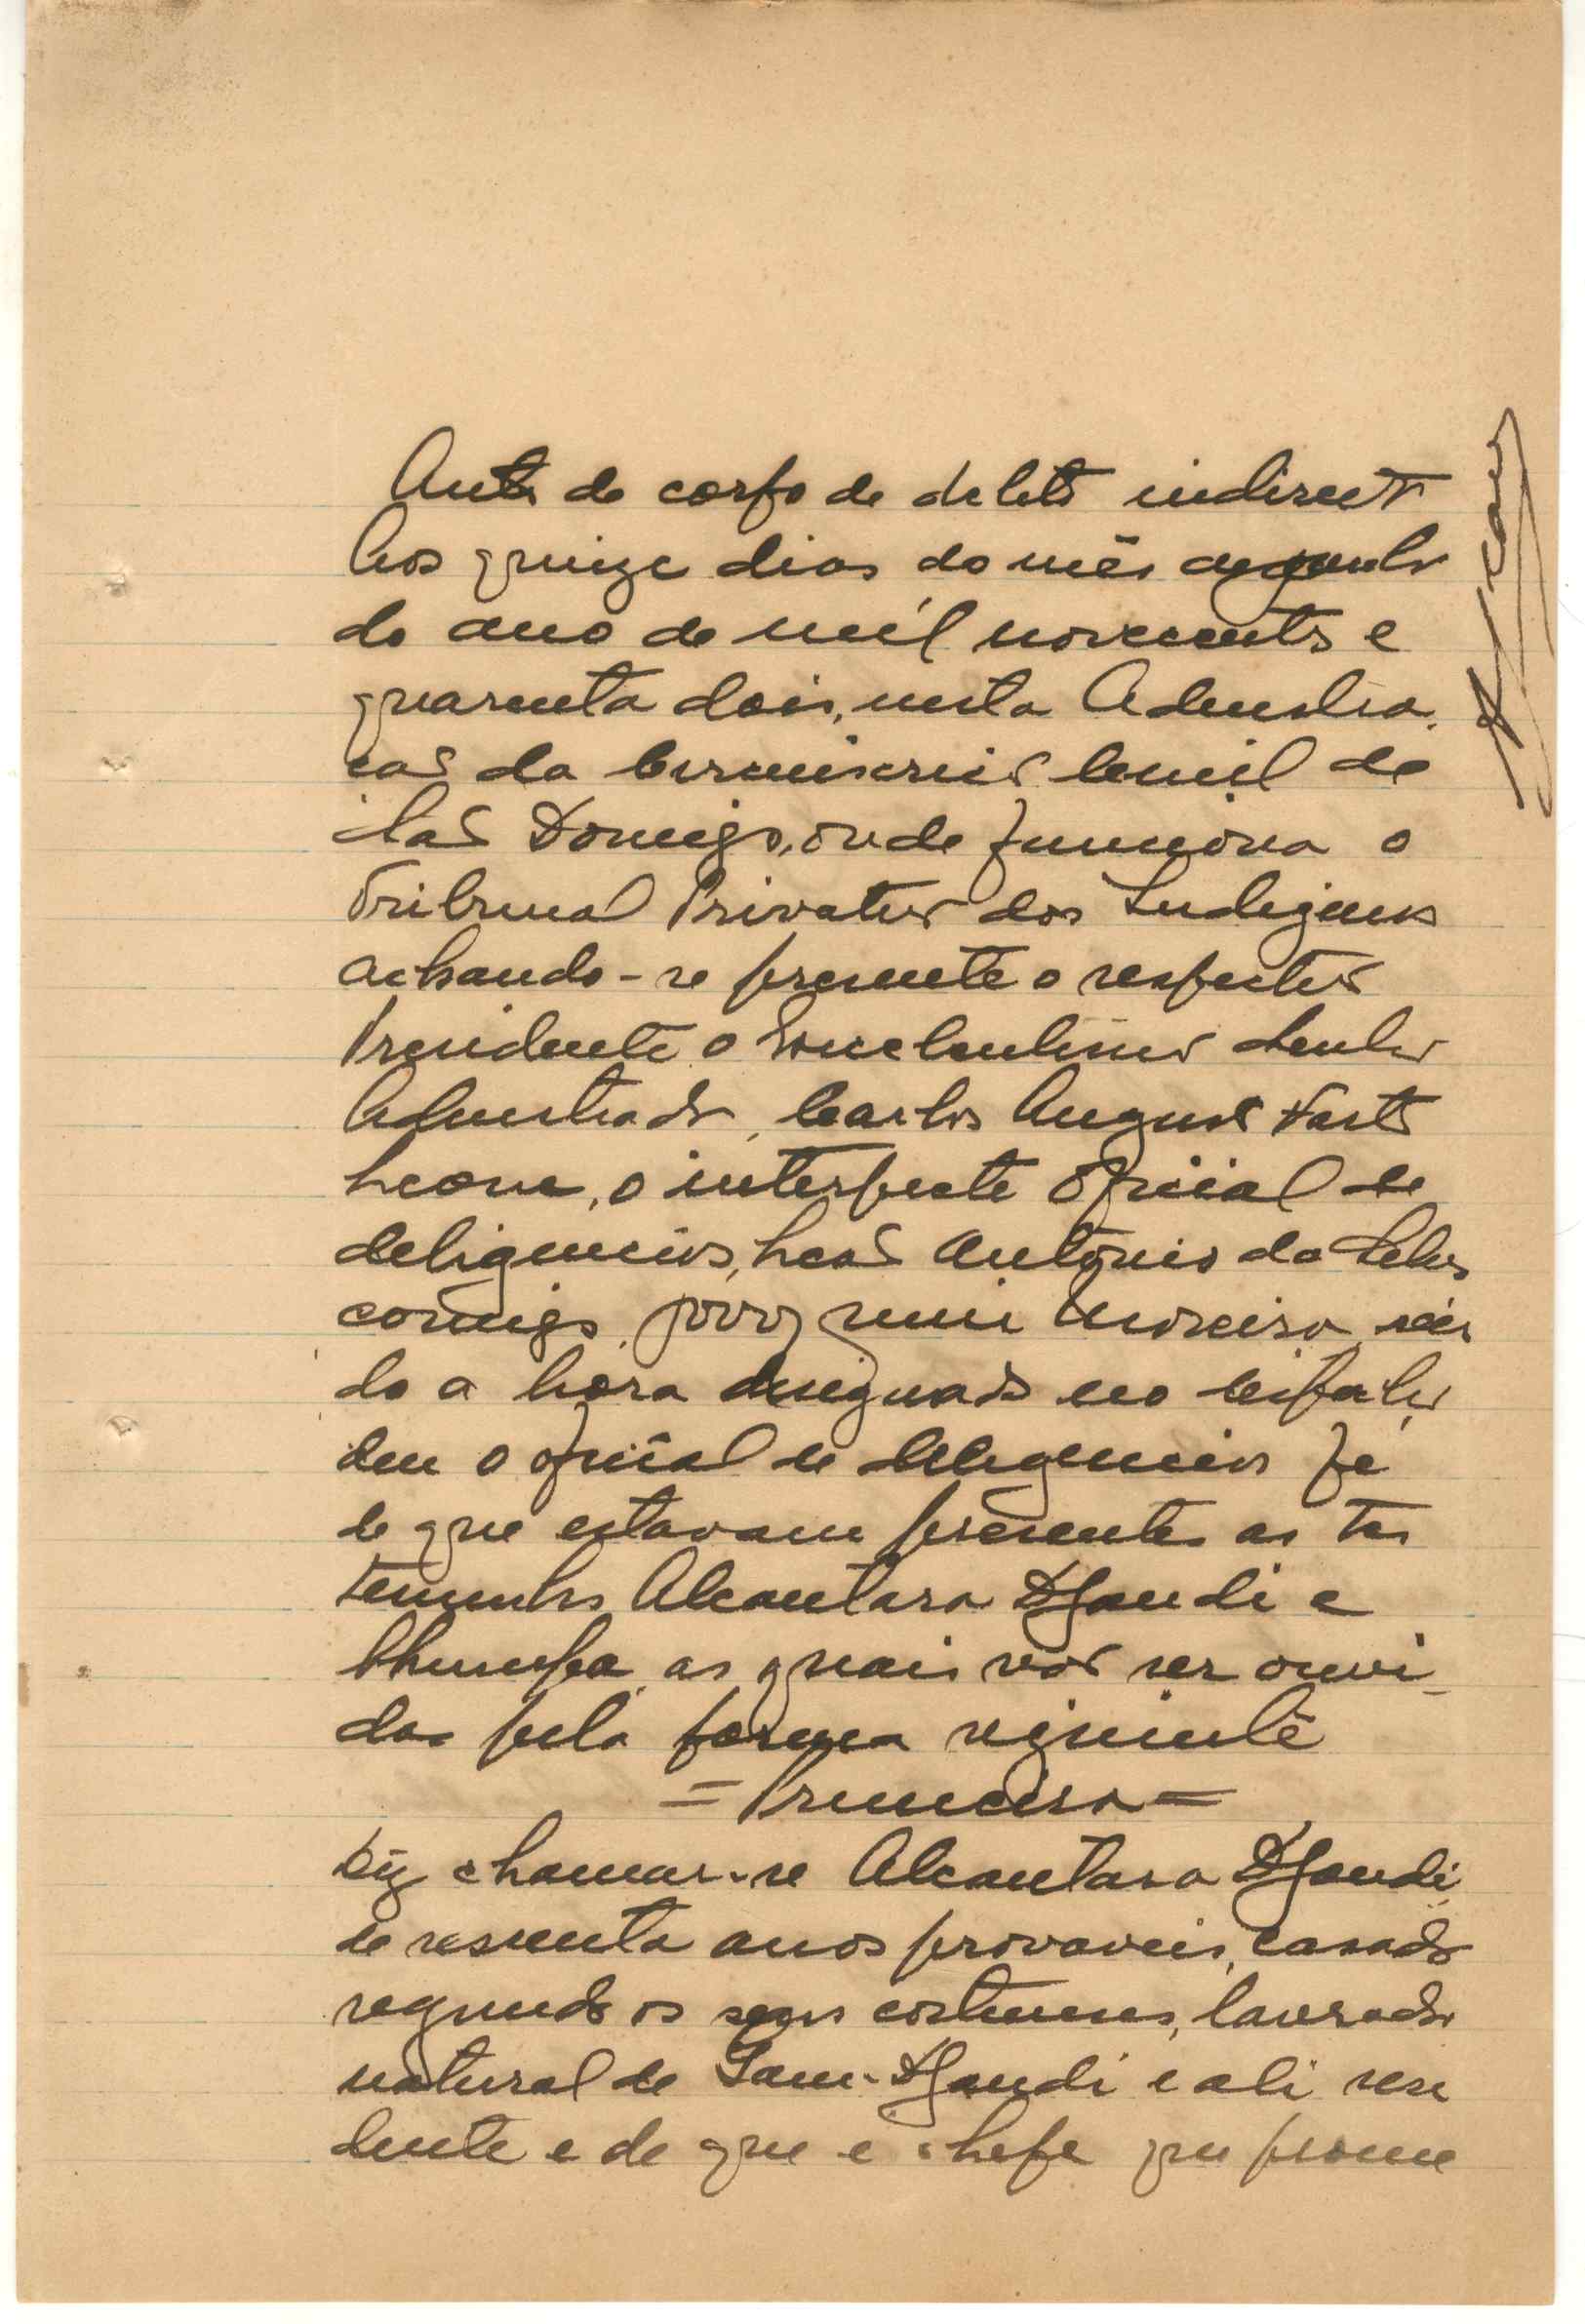 Auto de corpo de delito indirecto
Aos quinze dias do mês de Junho
do ano de mil novecentos e
quarenta dois, nesta Admnstra
ção da Circunscrição Civil de
São Domigos, onde funciona o
Tribunal Privativo dos Indigenas
achando-se presente o respectivo
Presidente o Excelentissimo Senhor
Admnstrador, Carlos Augusto Vasto
Leone, o interprete oficial de
deligencias, Leão António da Selva
comigo, Joaquim Moreira, sen
do a hora designada no despacho
deu o oficial de deligencias fé
de que estavam presentes as tes
temunhas Alcantara Djandi e
as quais vão ser ouvi
das pela forma seguinte
= Primeira =
Diz chamar-se Alcantara Djandi
de sessenta anos provaveis, casado
segundo os seus costumes, lavrador
natural de Sam-Djandi e ali resi
dente e de que é chefe que prome
Leone